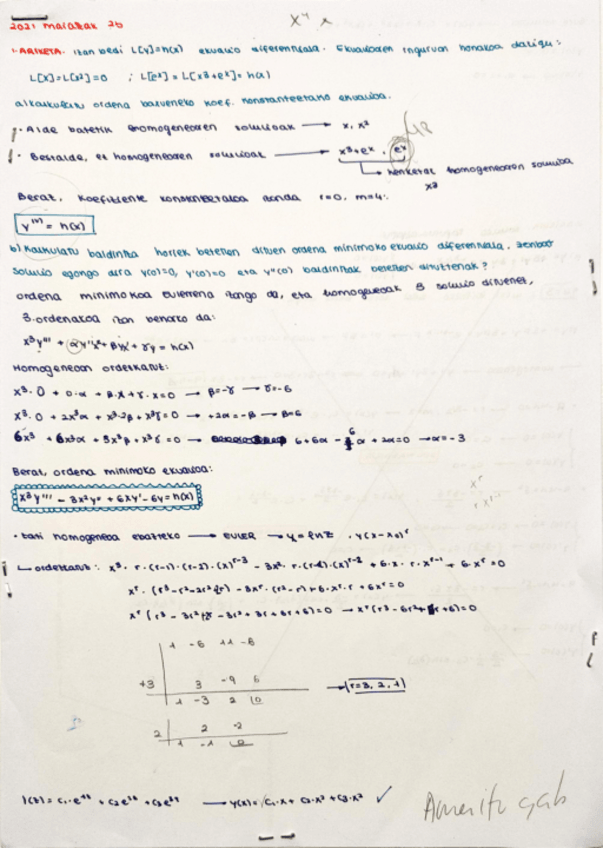 2021 maiatzak 26
1-ARIKETA. Izan bedi L[y]=h(x) ekuazio diferentziala. Ekuazioaren inguruan honakoa dakigu:
L[x]=L[x²]=0 ; L[eˣ]=L[x³+eˣ]=h(x)
a) kalkulatu ordena baxueneko koef. konstanteetako ekuazioa.
· Alde batetik homogeneoaren soluzioak → x, x²
· Bestalde, ez homogeneoaren soluzioak → x³+eˣ, eˣ
→ kenketak homogeneoaren soluzioa
x³
Beraz, koefiziente konstanteetakoa izanda r=0, m=4:
y⁽ᴵⱽ⁾ = h(x)
b) Kalkulatu baldintza horiek betetzen dituen ordena minimoko ekuazio diferentziala. Zenbat
soluzio egongo dira y(0)=0, y'(0)=0 eta y''(0) baldintzak betetzen dituztenak?
ordena minimokoa eulerrena izango da, eta homogeneoak 3 soluzio dituenez,
3. ordenakoa izan beharko da:
x³y''' + αy''x² + βy'x + γy = h(x)
Homogeneoan ordezkatuz:
x³·0 + 0·α + β·x + γ·x = 0 → β=-γ → γ=-6
x³·0 + 2x²α + x²·2β + x²γ = 0 → +2α=-β → β=6
6x³ + 6x³α + 3x³β + x³γ = 0 → 6+6α - 6α + 2α=0 → α=-3
Beraz, ordena minimoko ekuazioa:
x³y''' - 3x²y'' + 6xy' - 6y = h(x)
· EULER
ordezkatuz: x³·r·(r-1)·(r-2)·(x)ʳ⁻³ - 3x²·r·(r-1)·(x)ʳ⁻² + 6·x·r·xʳ⁻¹ - 6·xʳ = 0
1 -6 11 -6
+3 3 -9 6
1 -3 2 0
→ r=3, 2, 1
2 2 -2
1 -1 0
→ y(x)= C₁·x + C₂·x² + C₃·x³ ✓